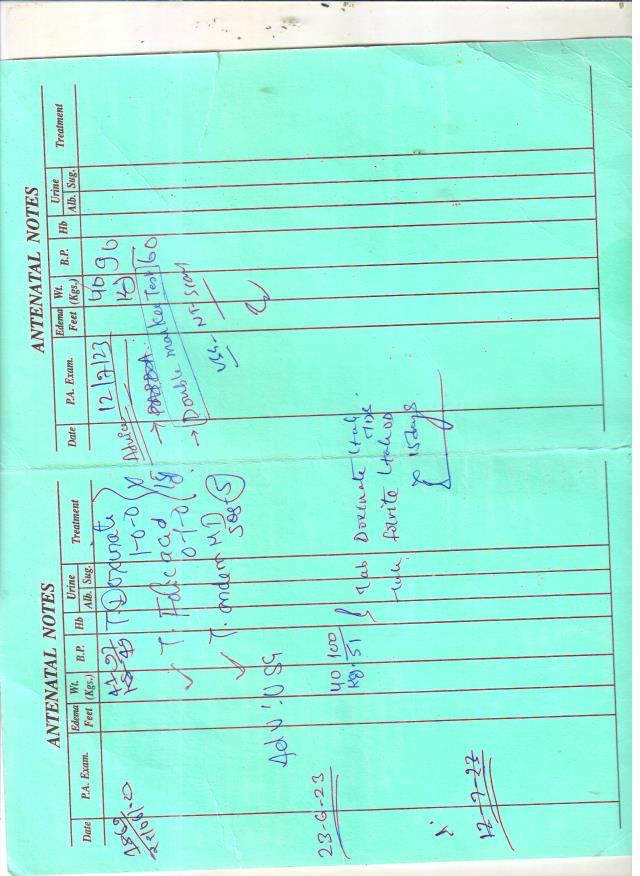 ANTENATAL NOTES
Date P.A. Exam. Edema Feet Wt. (Kgs.) B.P. Hb Urine Alb. Sug. Treatment
T. Doxinate
1-0-0
T. Folic acid
0-1-0
T. ondem MD
SOS (5)
Adv: USG
23-6-23
40 kg.
100/51
Tab Doxinate 1 tab
Tab folvite 1 tab OD
x 15 days
12-7-23
ANTENATAL NOTES
Date P.A. Exam. Edema Feet Wt. (Kgs.) B.P. Hb Urine Alb. Sug. Treatment
12/7/23
40 kg
90
60
Advice
→ Double marker Test
→ Double marker
USG- NT-Scan